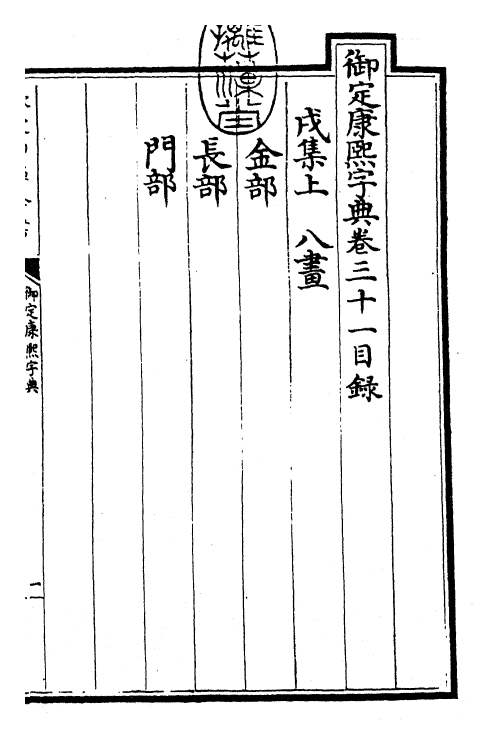 御定康熙字典卷三十一目録
戌集上　八畫
金部
長部
門部
御定康熙字典